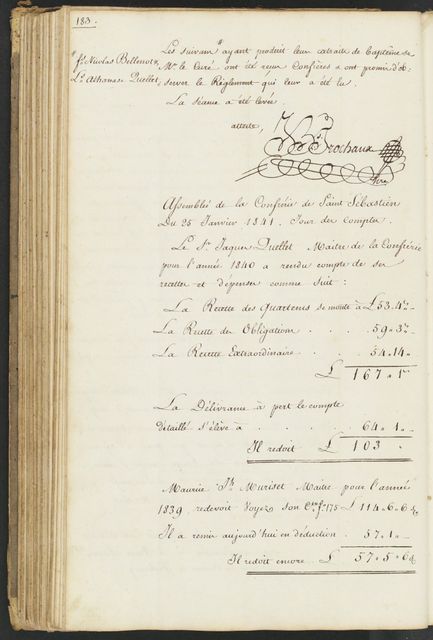 183.
Les suivans ayant produit leur extraits de Baptême se
fs. Nicolas Bellenot &
Mr. le Curé ont été reçus Confrères & ont promis d'ob-
Ls. Athanase Quellet,
server le Réglement qui leur a été lu.
La séance a été levée.
atteste,
Frochaux
Assemblée de la Confrérie de Saint Sébastien
Du 25 Janvier 1841. Jour des Comptes.
Le Sr. Jaques Quellet Maitre de la Confrérie
pour l'année 1840 a rendu compte de ses
recettes et dépenses comme suit :
La Recette des Quarterus se monte à £ 53.4.
La Recette des Obligations . . . 59.3.
La Recette Extraordinaire . . 54.14.
£ 167.1.
La Délivrance à part le compte
détaillé s'élève à . . . . 64.1.
Il redoit £ 103.
Maurice Jh. Muriset Maitre pour l'année
1839 redevoit Voyez son Cte. f. 175 £ 114.6.6
Il a remis aujourd'hui en déduction . 57.1.
Il redoit encore £ 57.5.6